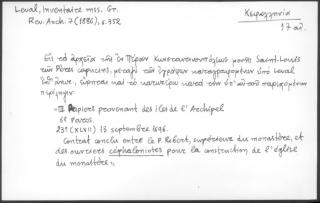 Laval, Inventaire mss. Gr.
Rev. Arch. 7 (1886), σ. 352
Κεφαλληνία
17 αἰ.
Εἰς τὰ ἀρχεῖα τῆς ἐν Πέραν Κωνσταντινουπόλεως μονῆς Saint-Louis
τῶν Pères μεταξὺ τῶν ἐγγράφων καταγραφομένων ὑπὸ Laval
καὶ τὸ κατωτέρω κατὰ τὴν ὑπ' αὐτοῦ παρεχομένην
περίληψιν.
« III Papiers provenant des îles de l'Archipel
6º Paros.
23º (XLVII) 13 septembre 1696.
Contrat conclu entre le P. Robert, supérieur du monastère, et
des ouvriers céphaloniotes pour la construction de l'église
du monastère »